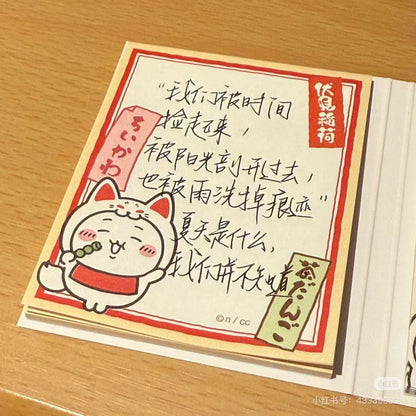 伏見稲荷
ちいかわ
“我们被时间
捡起来，
被阳光剖开过去，
也被雨洗掉痕迹”
夏天是什么，
我们并不知道
茶だんご
©n/cc
小红书